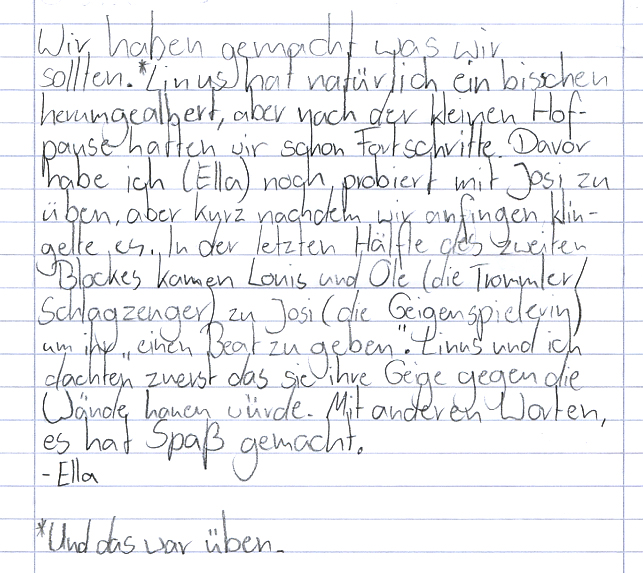 Wir haben gemacht was wir
sollten.*Linus hat natürlich ein bisschen
herumgealbert, aber nach der kleinen Hof-
pause hatten wir schon Fortschritte. Davor
habe ich (Ella) noch probiert mit Josi zu
üben, aber kurz nachdem wir anfingen klin-
gelte es. In der letzten Hälfte des zweiten
Blockes kamen Louis und Ole (die Trommler/
Schlagzeuger) zu Josi (die Geigenspielerin)
um ihr „einen Beat zu geben". Linus und ich
dachten zuerst das sie ihre Geige gegen die
Wände hauen würde. Mit anderen Worten,
es hat Spaß gemacht.
- Ella
*Und das war üben.